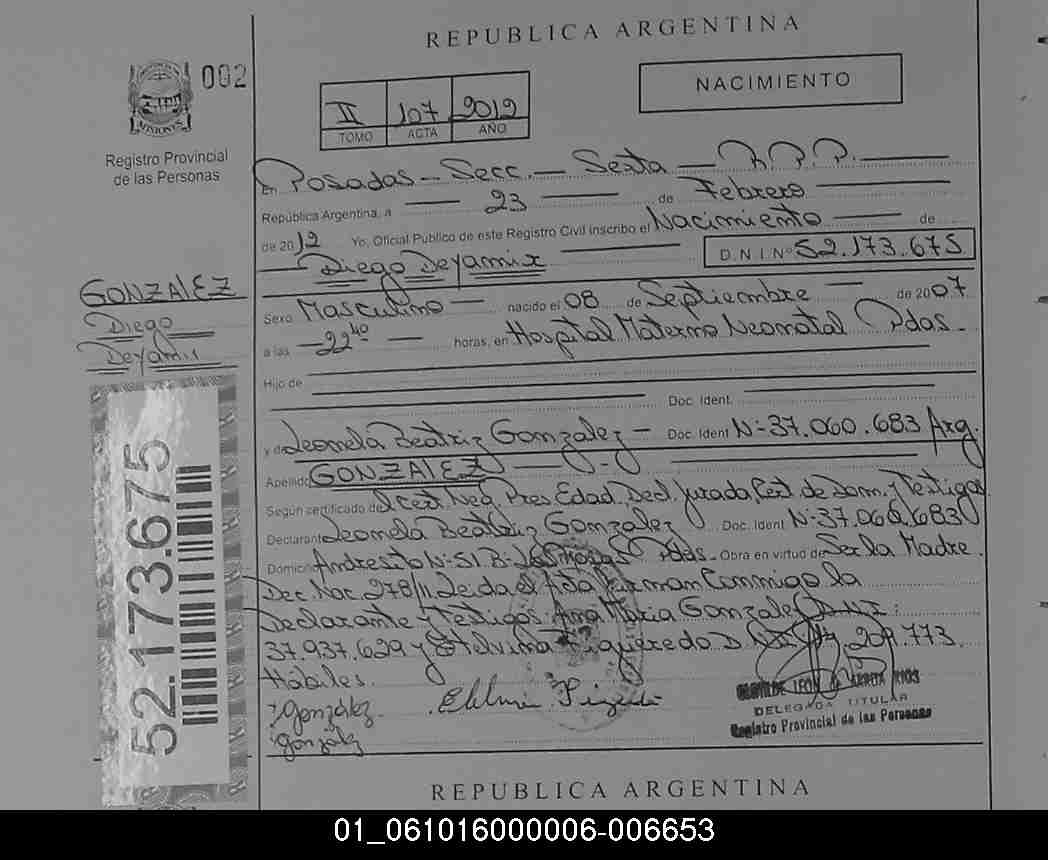 REPUBLICA ARGENTINA
002
MISIONES
Registro Provincial
de las Personas
II 107 2012
TOMO ACTA AÑO
NACIMIENTO
En Posadas - Secc. - Sexta - R.P.P.
República Argentina, a 23 de Febrero
de 2012 Yo, Oficial Publico de este Registro Civil inscribo el Nacimiento de
Diego Deyamix
D.N.I. Nº 52.173.675
GONZALEZ
Diego
Sexo Masculino nacido el 08 de Septiembre de 2007
a las 22 40 horas, en Hospital Materno Neonatal Pdas.
Hijo de
Doc. Ident.
y de Leonela Beatriz Gonzalez - Doc. Ident N-37.060.683 Arg.
Apellido GONZALEZ
Según certificado de Cert. Neg. Pres. Edad. Decl. Jurada Cert. de Dom. y Testigos
Declarante Leonela Beatriz Gonzalez Doc. Ident N-37.060.683
Domicilio Andresito N-51 B- Pdas. Obra en virtud de Ser la Madre.
Dec. Nac. 278/11 Leida el Acta Firman Conmigo la
Declarante y Testigos Ana Maria Gonzalez D.N.I:
37.937.629 y Etelvina Figueredo 209.773.
Hábiles.
Gonzalez
Gonzalez
DELEGADA TITULAR
Registro Provincial de las Personas
52.173.675
REPUBLICA ARGENTINA
01_061016000006-006653